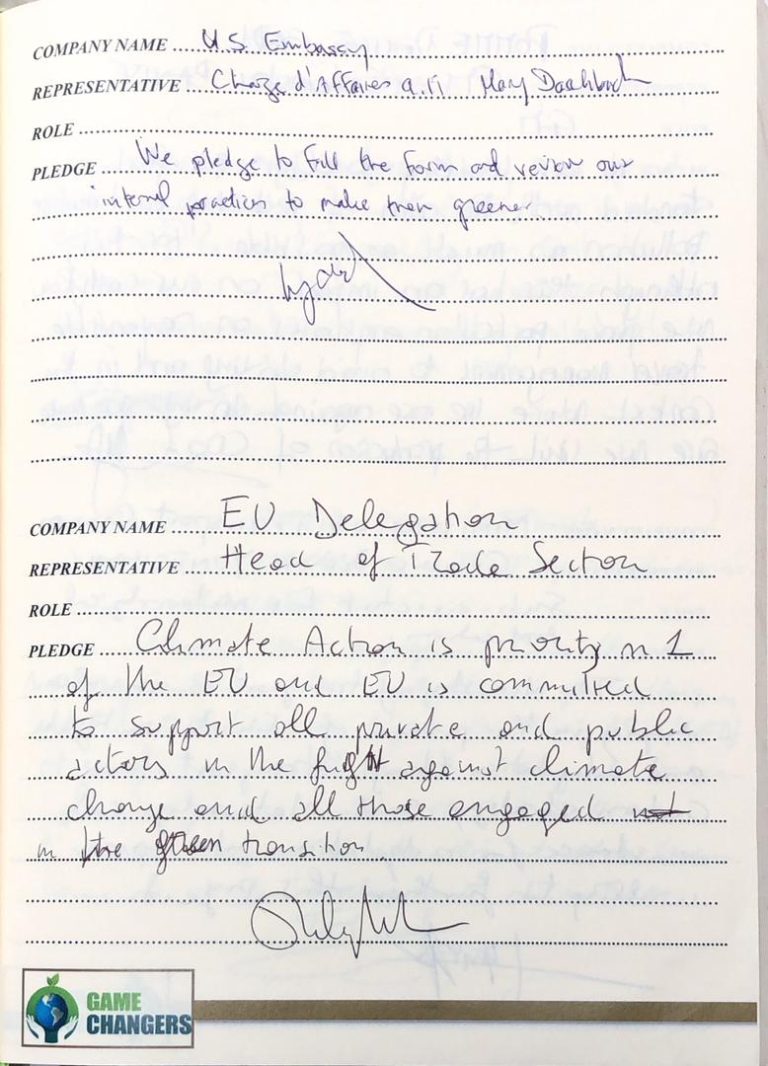 COMPANY NAME U.S. Embassy
REPRESENTATIVE Charge d'Affaires a.i. Mary
ROLE
PLEDGE We pledge to fill the form and review our
internal practices to make them greener
COMPANY NAME EU Delegation
REPRESENTATIVE Head of Trade Section
ROLE
PLEDGE Climate Action is priority n 1
of the EU and EU is committed
to support all private and public
actors in the fight against climate
change and all those engaged
in the green transition.
GAME
CHANGERS